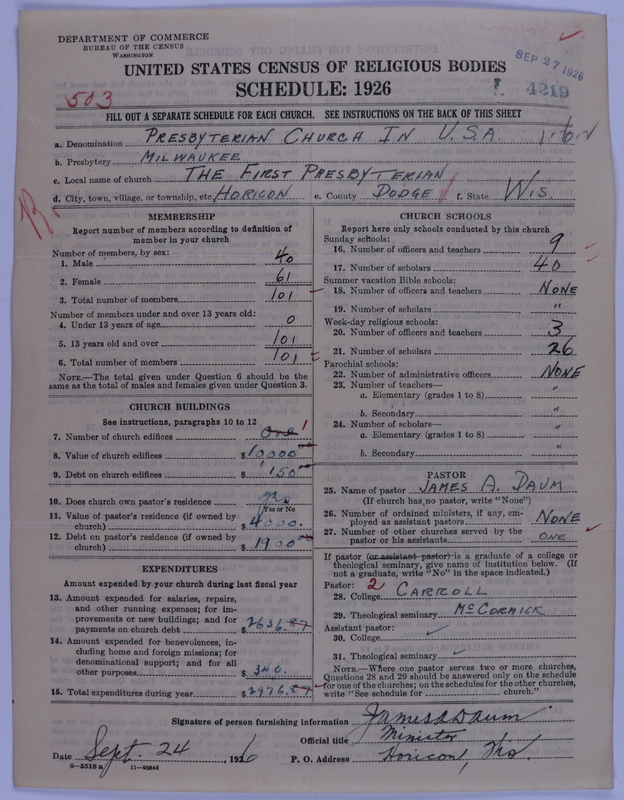 DEPARTMENT OF COMMERCE
BUREAU OF THE CENSUS
WASHINGTON
SEP 27 1926
UNITED STATES CENSUS OF RELIGIOUS BODIES
SCHEDULE: 1926
4219
503
FILL OUT A SEPARATE SCHEDULE FOR EACH CHURCH. SEE INSTRUCTIONS ON THE BACK OF THIS SHEET
a. Denomination PRESBYTERIAN CHURCH IN U.S.A.
b. Presbytery MILWAUKEE
c. Local name of church THE FIRST PRESBYTERIAN
d. City, town, village, or township, etc. HORICON e. County DODGE f. State WIS.
MEMBERSHIP
Report number of members according to definition of
member in your church
Number of members, by sex:
1. Male 40
2. Female 61
3. Total number of members 101
Number of members under and over 13 years old:
4. Under 13 years of age 0
5. 13 years old and over 101
6. Total number of members 101
NOTE.—The total given under Question 6 should be the
same as the total of males and females given under Question 3.
CHURCH BUILDINGS
See instructions, paragraphs 10 to 12
7. Number of church edifices One 1
8. Value of church edifices $10000
9. Debt on church edifices $150
10. Does church own pastor's residence Yes
Yes or No
11. Value of pastor's residence (if owned by
church) $4000.
12. Debt on pastor's residence (if owned by
church) $1900
EXPENDITURES
Amount expended by your church during last fiscal year
13. Amount expended for salaries, repairs,
and other running expenses; for im-
provements or new buildings; and for
payments on church debt $2636.87
14. Amount expended for benevolences, in-
cluding home and foreign missions; for
denominational support; and for all
other purposes $340.
15. Total expenditures during year $2976.87
CHURCH SCHOOLS
Report here only schools conducted by this church
Sunday schools:
16. Number of officers and teachers 9
17. Number of scholars 40
Summer vacation Bible schools:
18. Number of officers and teachers NONE
19. Number of scholars "
Week-day religious schools:
20. Number of officers and teachers 3
21. Number of scholars 26
Parochial schools:
22. Number of administrative officers NONE
23. Number of teachers—
a. Elementary (grades 1 to 8) "
b. Secondary "
24. Number of scholars—
a. Elementary (grades 1 to 8) "
b. Secondary "
PASTOR
25. Name of pastor JAMES A. DAUM
(If church has no pastor, write "None")
26. Number of ordained ministers, if any, em-
ployed as assistant pastors NONE
27. Number of other churches served by the
pastor or his assistants ONE
If pastor (or assistant pastor) is a graduate of a college or
theological seminary, give name of institution below. (If
not a graduate, write "No" in the space indicated.)
Pastor: 2
28. College CARROLL
29. Theological seminary McCORMICK
Assistant pastor:
30. College
31. Theological seminary
NOTE.—Where one pastor serves two or more churches,
Questions 28 and 29 should be answered only on the schedule
for one of the churches; on the schedules for the other churches,
write "See schedule for church."
Signature of person furnishing information James A Daum
Official title Minister
Date Sept. 24, 1926 P. O. Address Horicon, Wis.
8—5518a 11—9054d